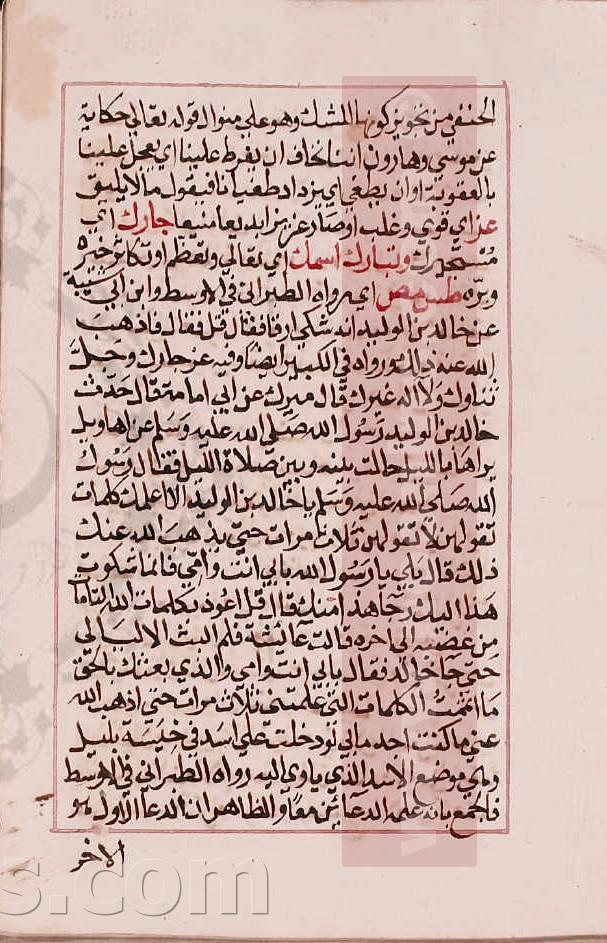 الحنفي من تجويز كونها للمشك وهو علي منوال قوله تعالي حكاية
عن موسي وهارون اننا نخاف ان يفرط علينا اي يعجل علينا
بالعقوبة او ان يطغي اي يزداد طغيانا فيقول ما لا يليق
عز اي قوي وغلب او صار عزيزا بديعا منيعا جارك اي
مستجيرك وتبارك اسمك اي تعالي وتعظم او تكاثر خيره
وبره طس مص اي رواه الطبراني في الاوسط وابن ابي شيبة
عن خالد بن الوليد انه شكي ارقا فقال قل فقال فاذهب
الله عنه ذلك ورواه في الكبير ايضا وفيه عز جارك وجل
ثناوك ولا اله غيرك قال ميرك عن ابي امامة قال حدث
خالد بن الوليد رسول الله صلي الله عليه وسلم عن اهاويل
يراها بالليل حالت بينه وبين صلاة الليل فقال رسول
الله صلي الله عليه وسلم يا خالد بن الوليد الا اعلمك كلمات
تقولهن لا تقولهن ثلاث مرات حتي يذهب الله عنك
ذلك قال بلي يا رسول الله بابي انت وامي فانما شكوت
هذا اليك رجا هذا منك قال قل اعوذ بكلمات الله التامات
من غضبه الي اخره قالت عائشة فلم البث الا ليالي
حتي جا خالد فقال بابي انت وامي والذي بعثك بالحق
ما اتممت الكلمات التي علمتني ثلاث مرات حتي اذهب الله
عني ما كنت اجد ما بي لو دخلت علي اسد في خيسة بليل
وهي موضع الاسد الذي ياوي اليه رواه الطبراني في الاوسط
فالجمع بانه علمه الدعائين معا والظاهر ان الدعا الاول هو
الاخر
s.com